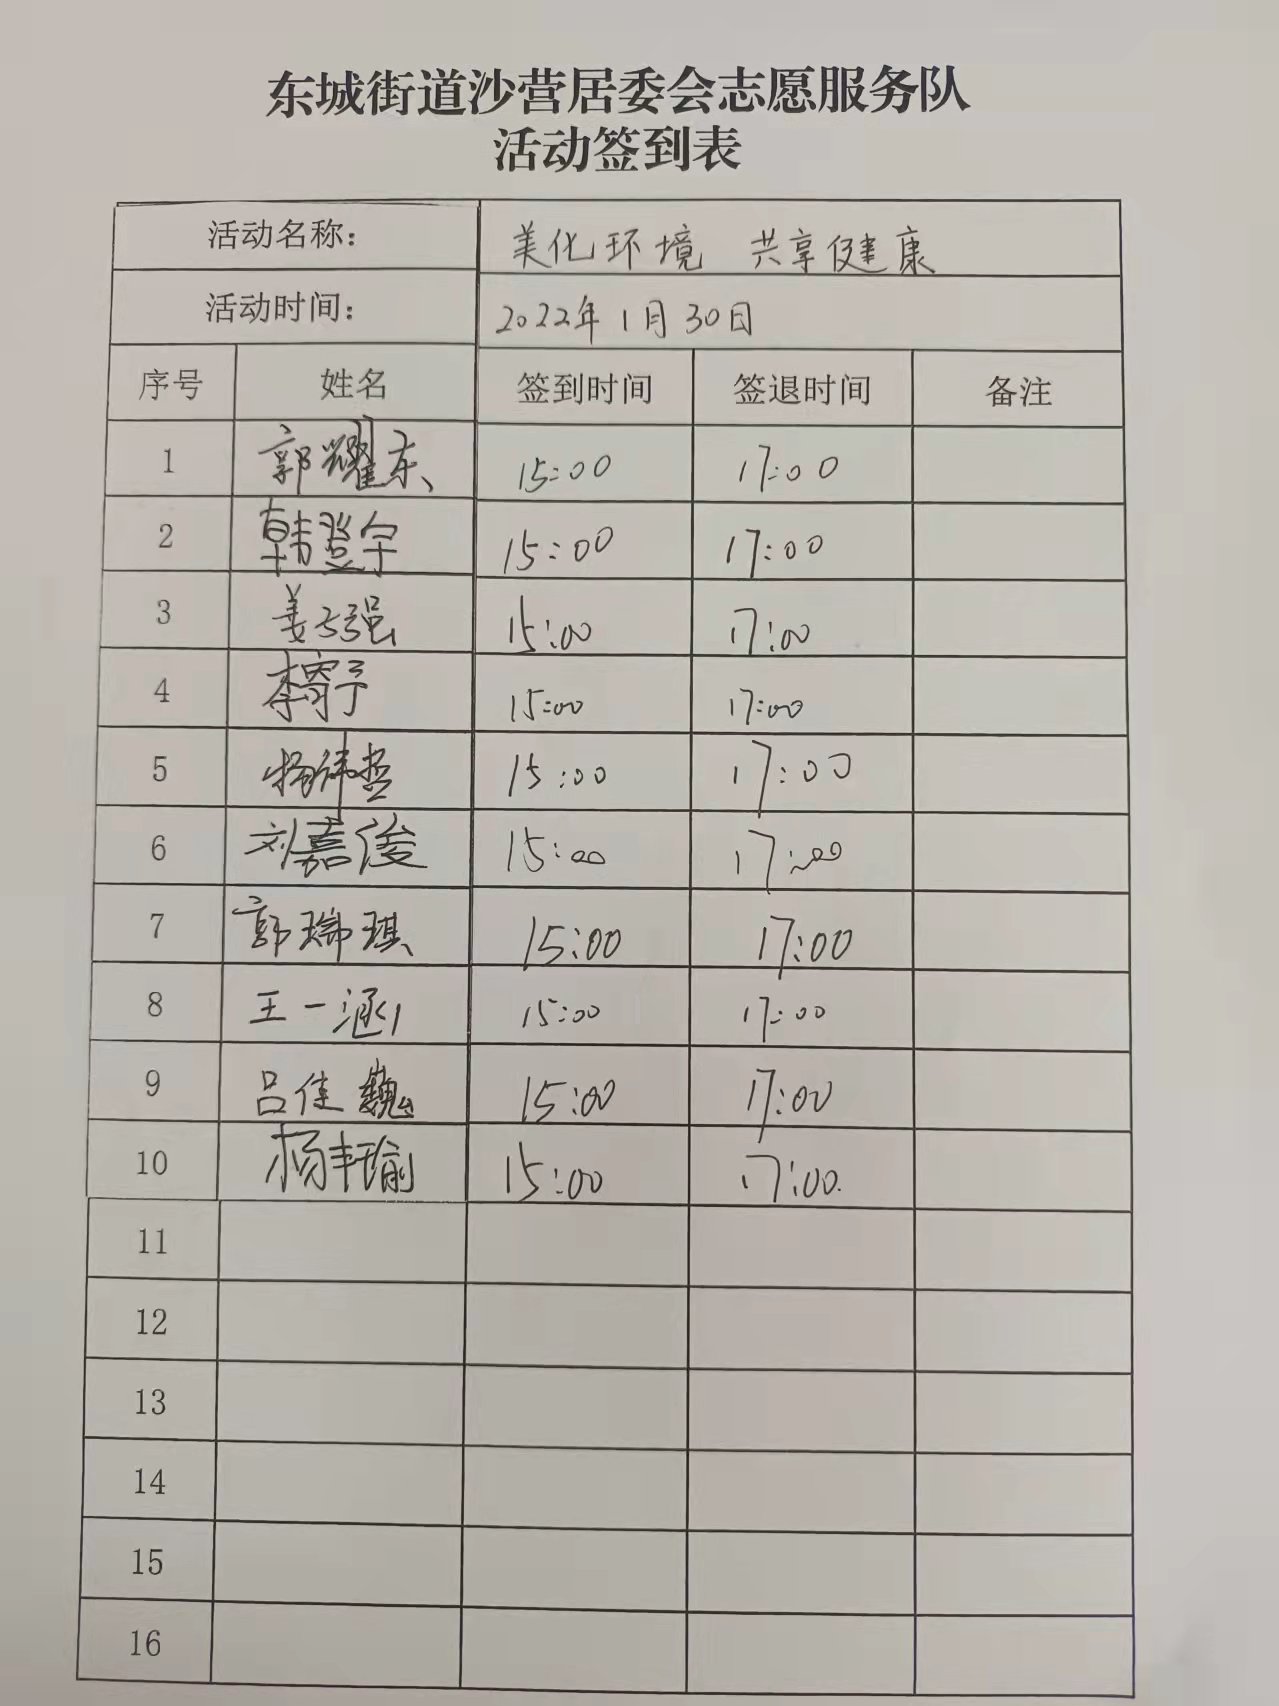 东城街道沙营居委会志愿服务队
活动签到表
活动名称： 美化环境 共享健康
活动时间： 2022年1月30日
序号 姓名 签到时间 签退时间 备注
1 郭耀东 15:00 17:00
2 韩登宇 15:00 17:00
3 姜强 15:00 17:00
4 李予 15:00 17:00
5 杨伟哲 15:00 17:00
6 刘嘉俊 15:00 17:00
7 郭瑞琪 15:00 17:00
8 王一涵 15:00 17:00
9 吕佳巍 15:00 17:00
10 杨丰瑜 15:00 17:00
11
12
13
14
15
16